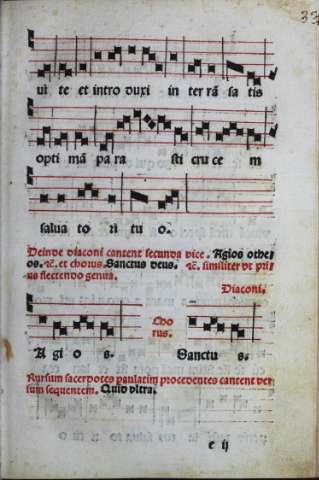 33
ui te et intro duxi in terrā sa tis
opti mā pa ra sti cru ce m
salua to ri tu o.
Deinde diaconi cantent secunda vice. Agios othe
os. rē. et chorus. Sanctus deus. rē. similiter vt pri
us flectendo genua.
Diaconi.
Cho
rus.
A gi o s. Sanctu s.
Rursum sacerdotes paulatim procedentes cantent ver
sum sequentem. Quid vltra.
e ij